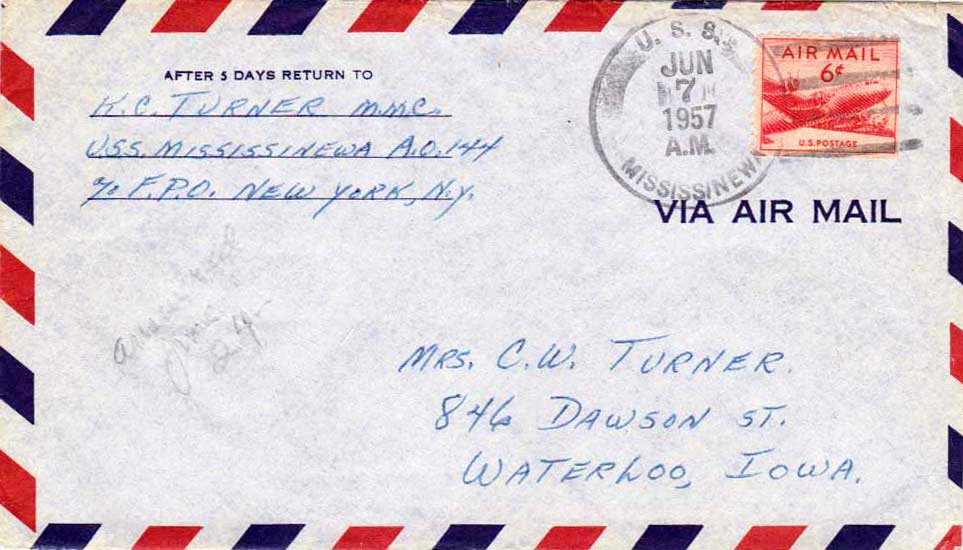 AFTER 5 DAYS RETURN TO
K.C. TURNER M.M.C.
U.S.S. MISSISSINEWA A.O. 144
% F.P.O. NEW YORK, N.Y.
U. S. S.
JUN
7
1957
A.M.
MISSISSINEWA
AIR MAIL
6¢
U.S. POSTAGE
VIA AIR MAIL
answered
June
24
MRS. C.W. TURNER.
846 DAWSON ST.
WATERLOO, IOWA.